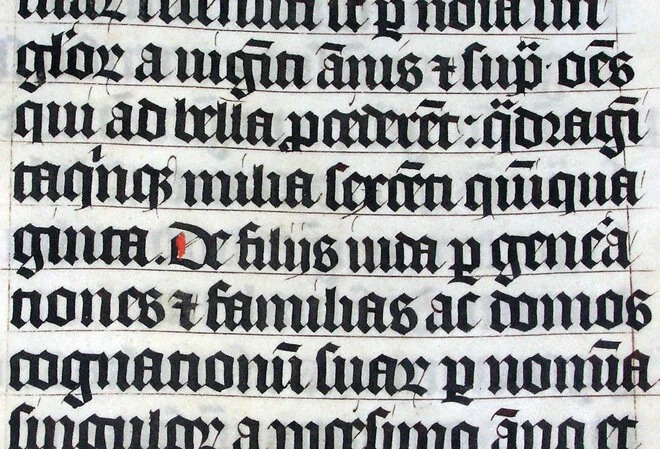 suaꝝ recensiti st ꝑ noīa sin
gl'oꝝ a uigīti ānis ⁊ supᷓ· oēs
qui ad bella ꝓcederēt: qᷓdragī
taqͥnqꝫ milia sexcēti quīqua
ginta. De filijs iuda ꝑ geneᷓa
tiones ⁊ familias ac domos
cognationū suaꝝ ꝑ nomīa
singuloꝝ a uicesimo āno et